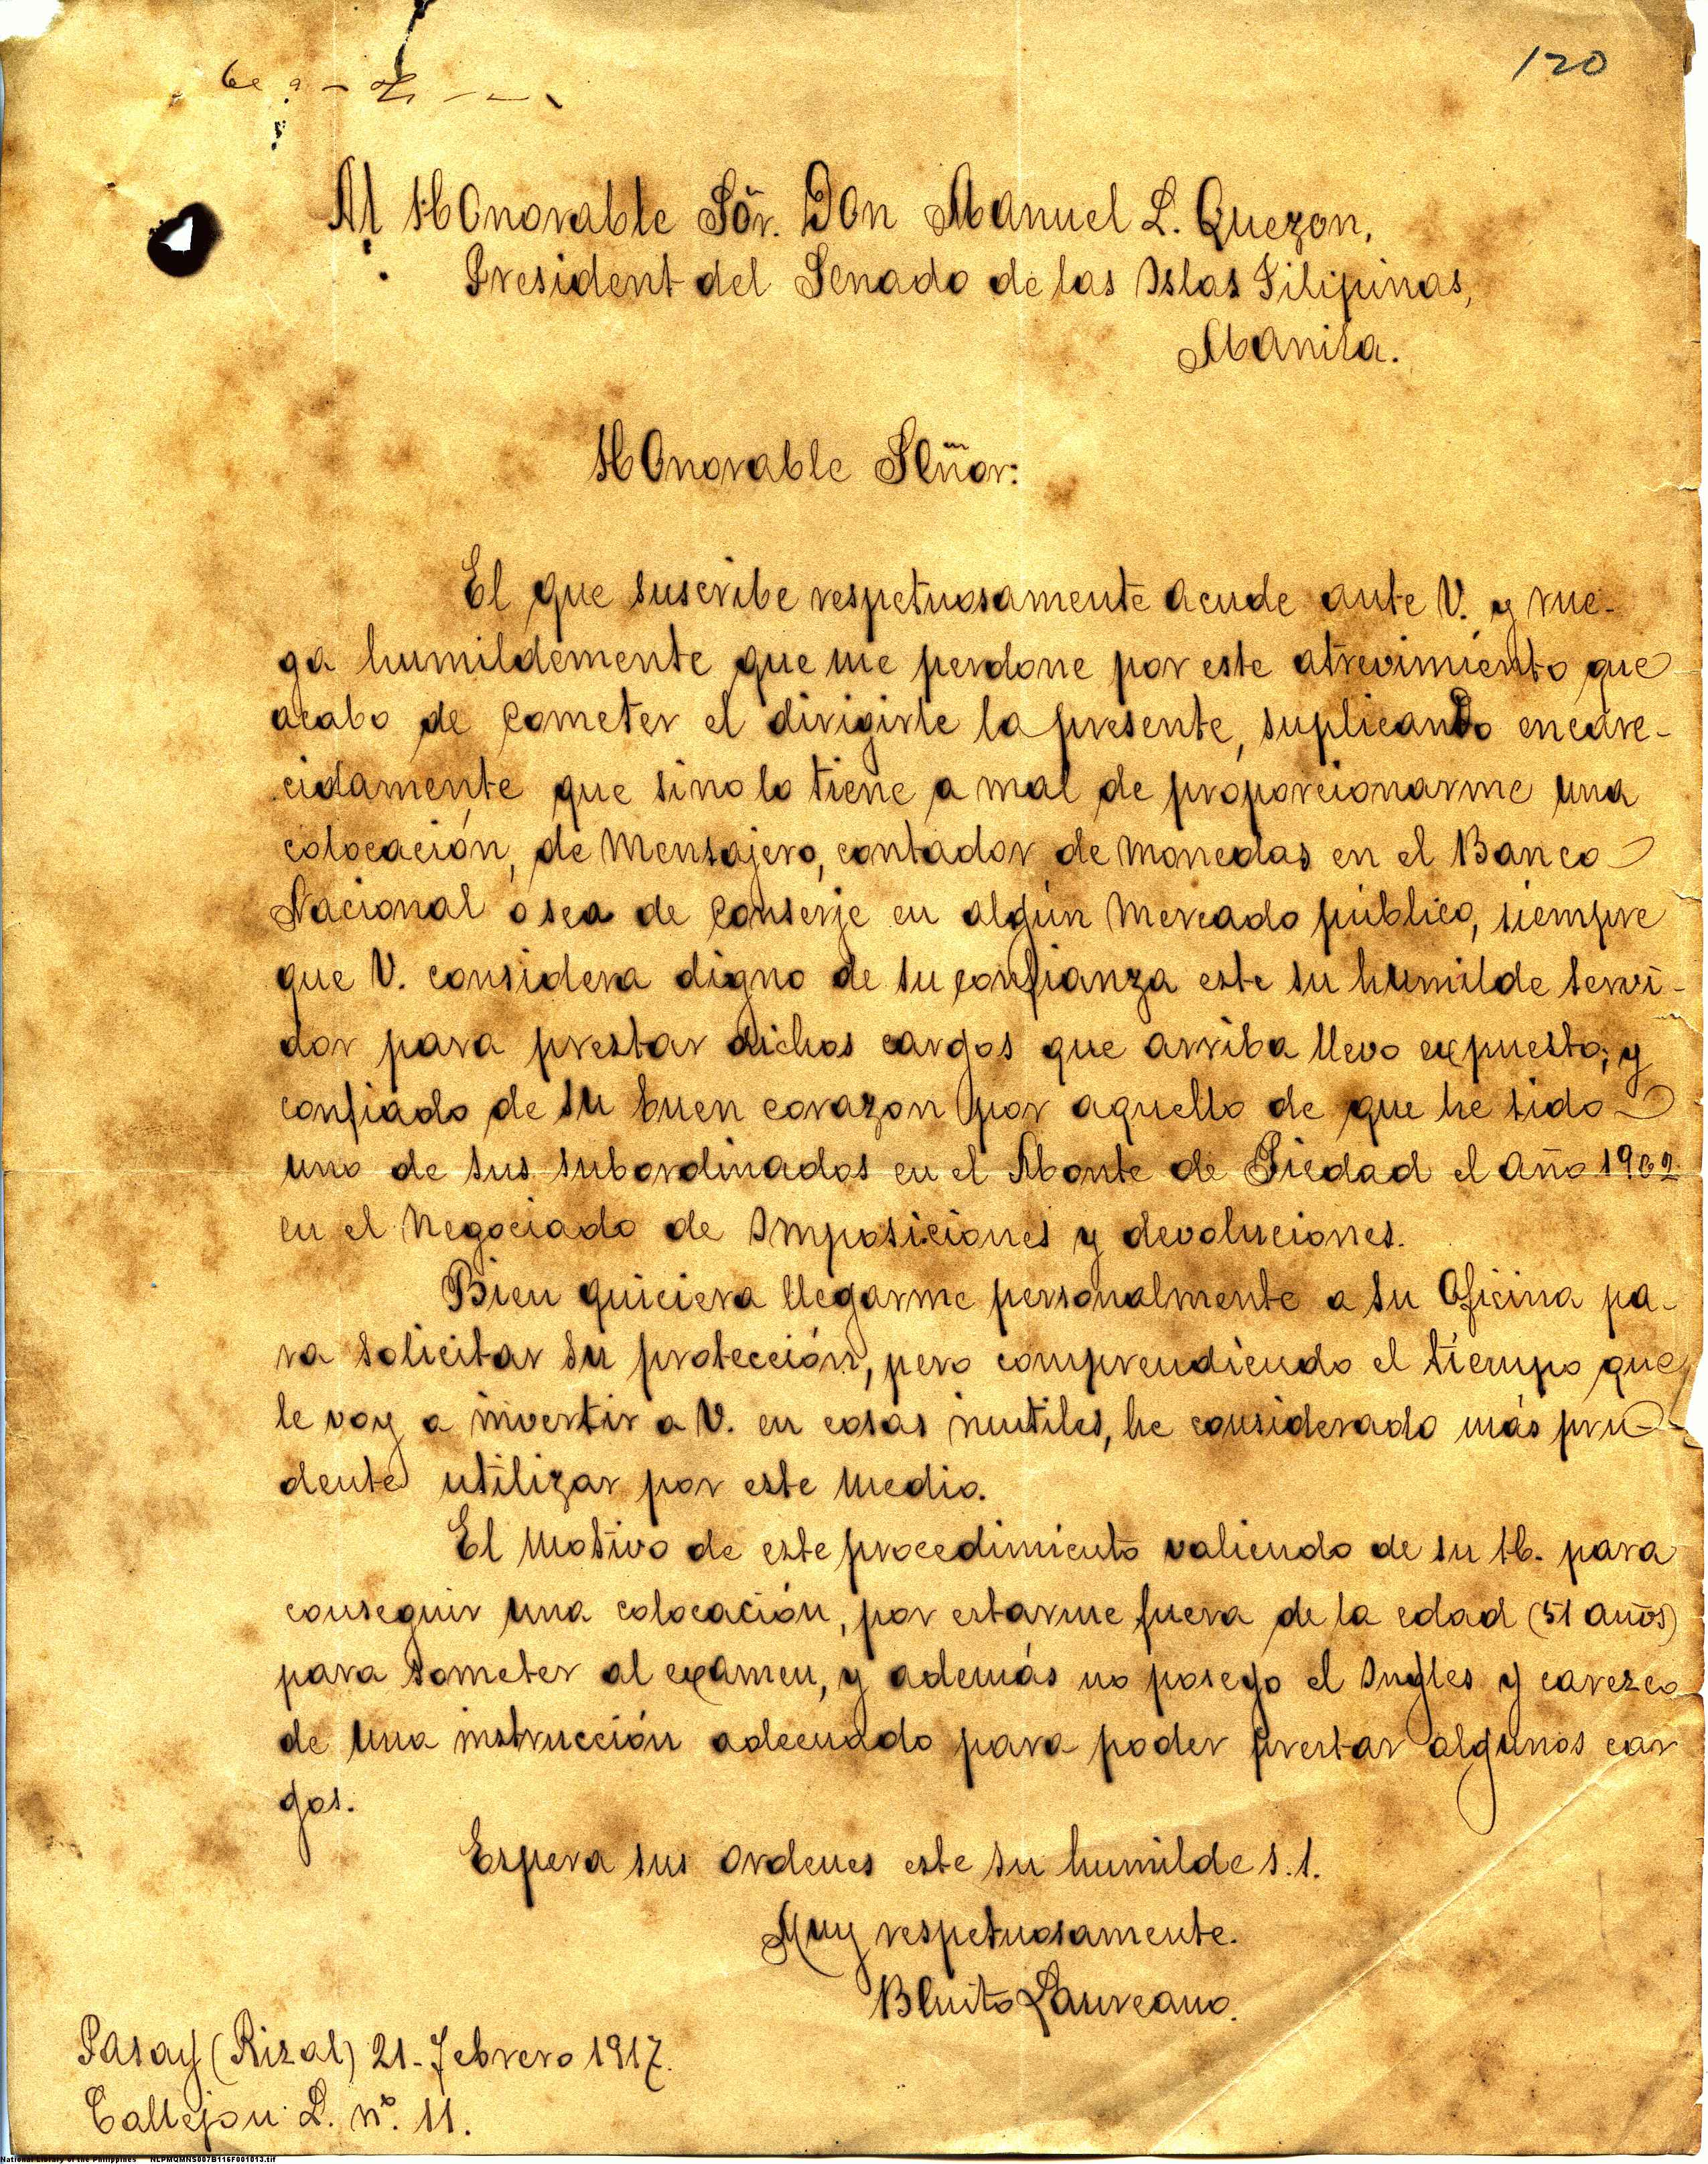 120
Al Honorable Sõr. Don Manuel L. Quezon,
President del Senado de las Islas Filipinas,
Manila.
Honorable Señor:
El que suscribe respetuosamente acude ante V. y rue-
ga humildemente que me perdone por este atrevimiento que
acabo de cometer el dirigirle la presente, suplicando encare-
cidamente que sino lo tiene a mal de proporcionarme una
colocación, de mensajero, contador de monedas en el Banco
Nacional ó sea de conserje en algún mercado público, siempre
que V. considera digno de su confianza este su humilde servi-
dor para prestar dichos cargos que arriba llevo expuesto; y
confiado de su buen corazon por aquello de que he sido
uno de sus subordinados en el Monte de Piedad el año 1902
en el Negociado de Imposiciones y devoluciones.
Bien quiciera llegarme personalmente a su Oficina pa-
ra solicitar su protección, pero comprendiendo el tiempo que
le voy a invertir a V. en cosas inutiles, he considerado más pru-
dente utilizar por este medio.
El motivo de este procedimiento valiendo de su H. para
conseguir una colocación, por estarme fuera de la edad (51 años)
para someter al examen, y además no poseyo el Ingles y carezco
de una instrucción adecuado para poder prestar algunos car
gos.
Espera sus ordenes este su humilde s.s.
Muy respetuosamente.
Benito Laureano.
Pasay (Rizal) 21-Febrero 1917.
Callejon L. nº. 11.
National Library of the Philippines NLPMQMNS007B116F001013.tif